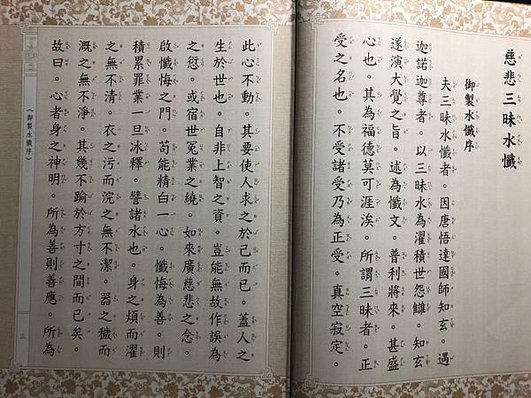 慈悲三昧水懺
御製水懺序
夫三昧水懺者。因唐悟達國師知玄。遇
迦諾迦尊者。以三昧水為濯積世怨讎。知玄
遂演大覺之旨。述為懺文。普利將來。甚盛
心也。其為福德莫可涯涘。所謂三昧者。正
受之名也。不受諸受乃為正受。真空寂定。
此心不動。其要使人求之於己而已。蓋人之
生於世也。自非上智之資。豈能無故作誤為
之愆。或宿世冤業之繞。如來廣慈悲之念。
啟懺悔之門。苟能精白一心。懺悔為善。則
積累罪業一旦冰釋。譬諸水也。身之煩而濯
之無不清。衣之污而浣之無不潔。器之穢而
溉之無不淨。其幾不踰於方寸之間而已矣。
故曰。心者身之神明。所為善則善應。所為
《御製水懺序》